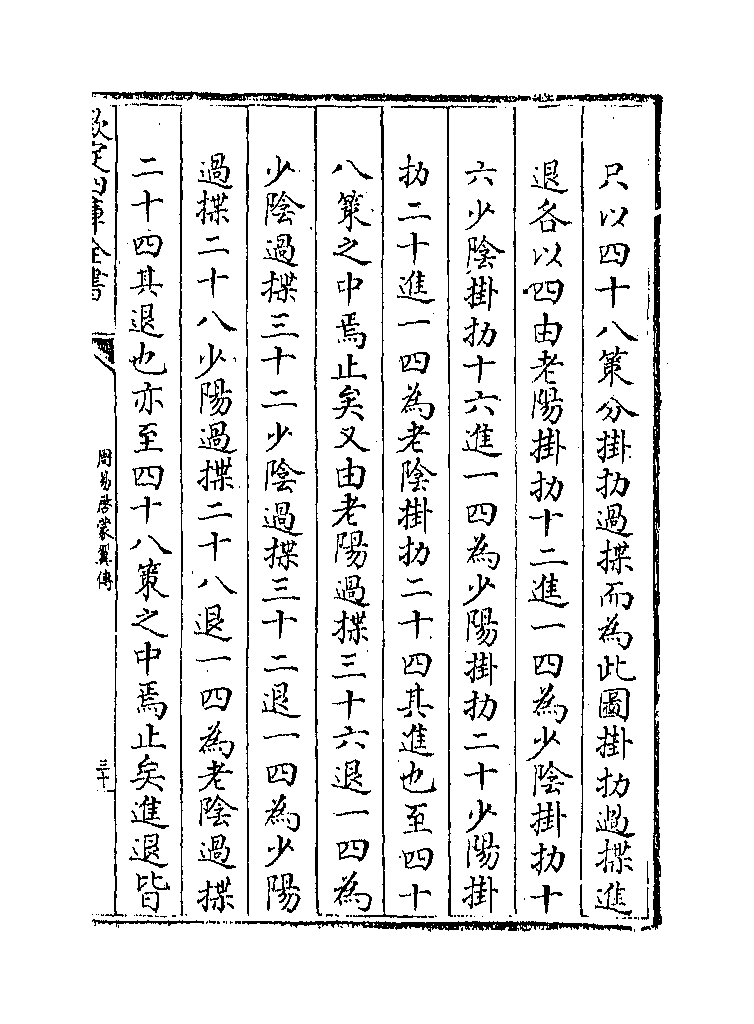 只以四十八策分掛扐過揲而為此圖掛扐過揲進
退各以四由老陽掛扐十二進一四為少陰掛扐十
六少陰掛扐十六進一四為少陽掛扐二十少陽掛
扐二十進一四為老陰掛扐二十四其進也至四十
八策之中焉止矣又由老陽過揲三十六退一四為
少陰過揲三十二少陰過揲三十二退一四為少陽
過揲二十八少陽過揲二十八退一四為老陰過揲
二十四其退也亦至四十八策之中焉止矣進退皆
欽定四庫全書
周易啓蒙翼傳
三十